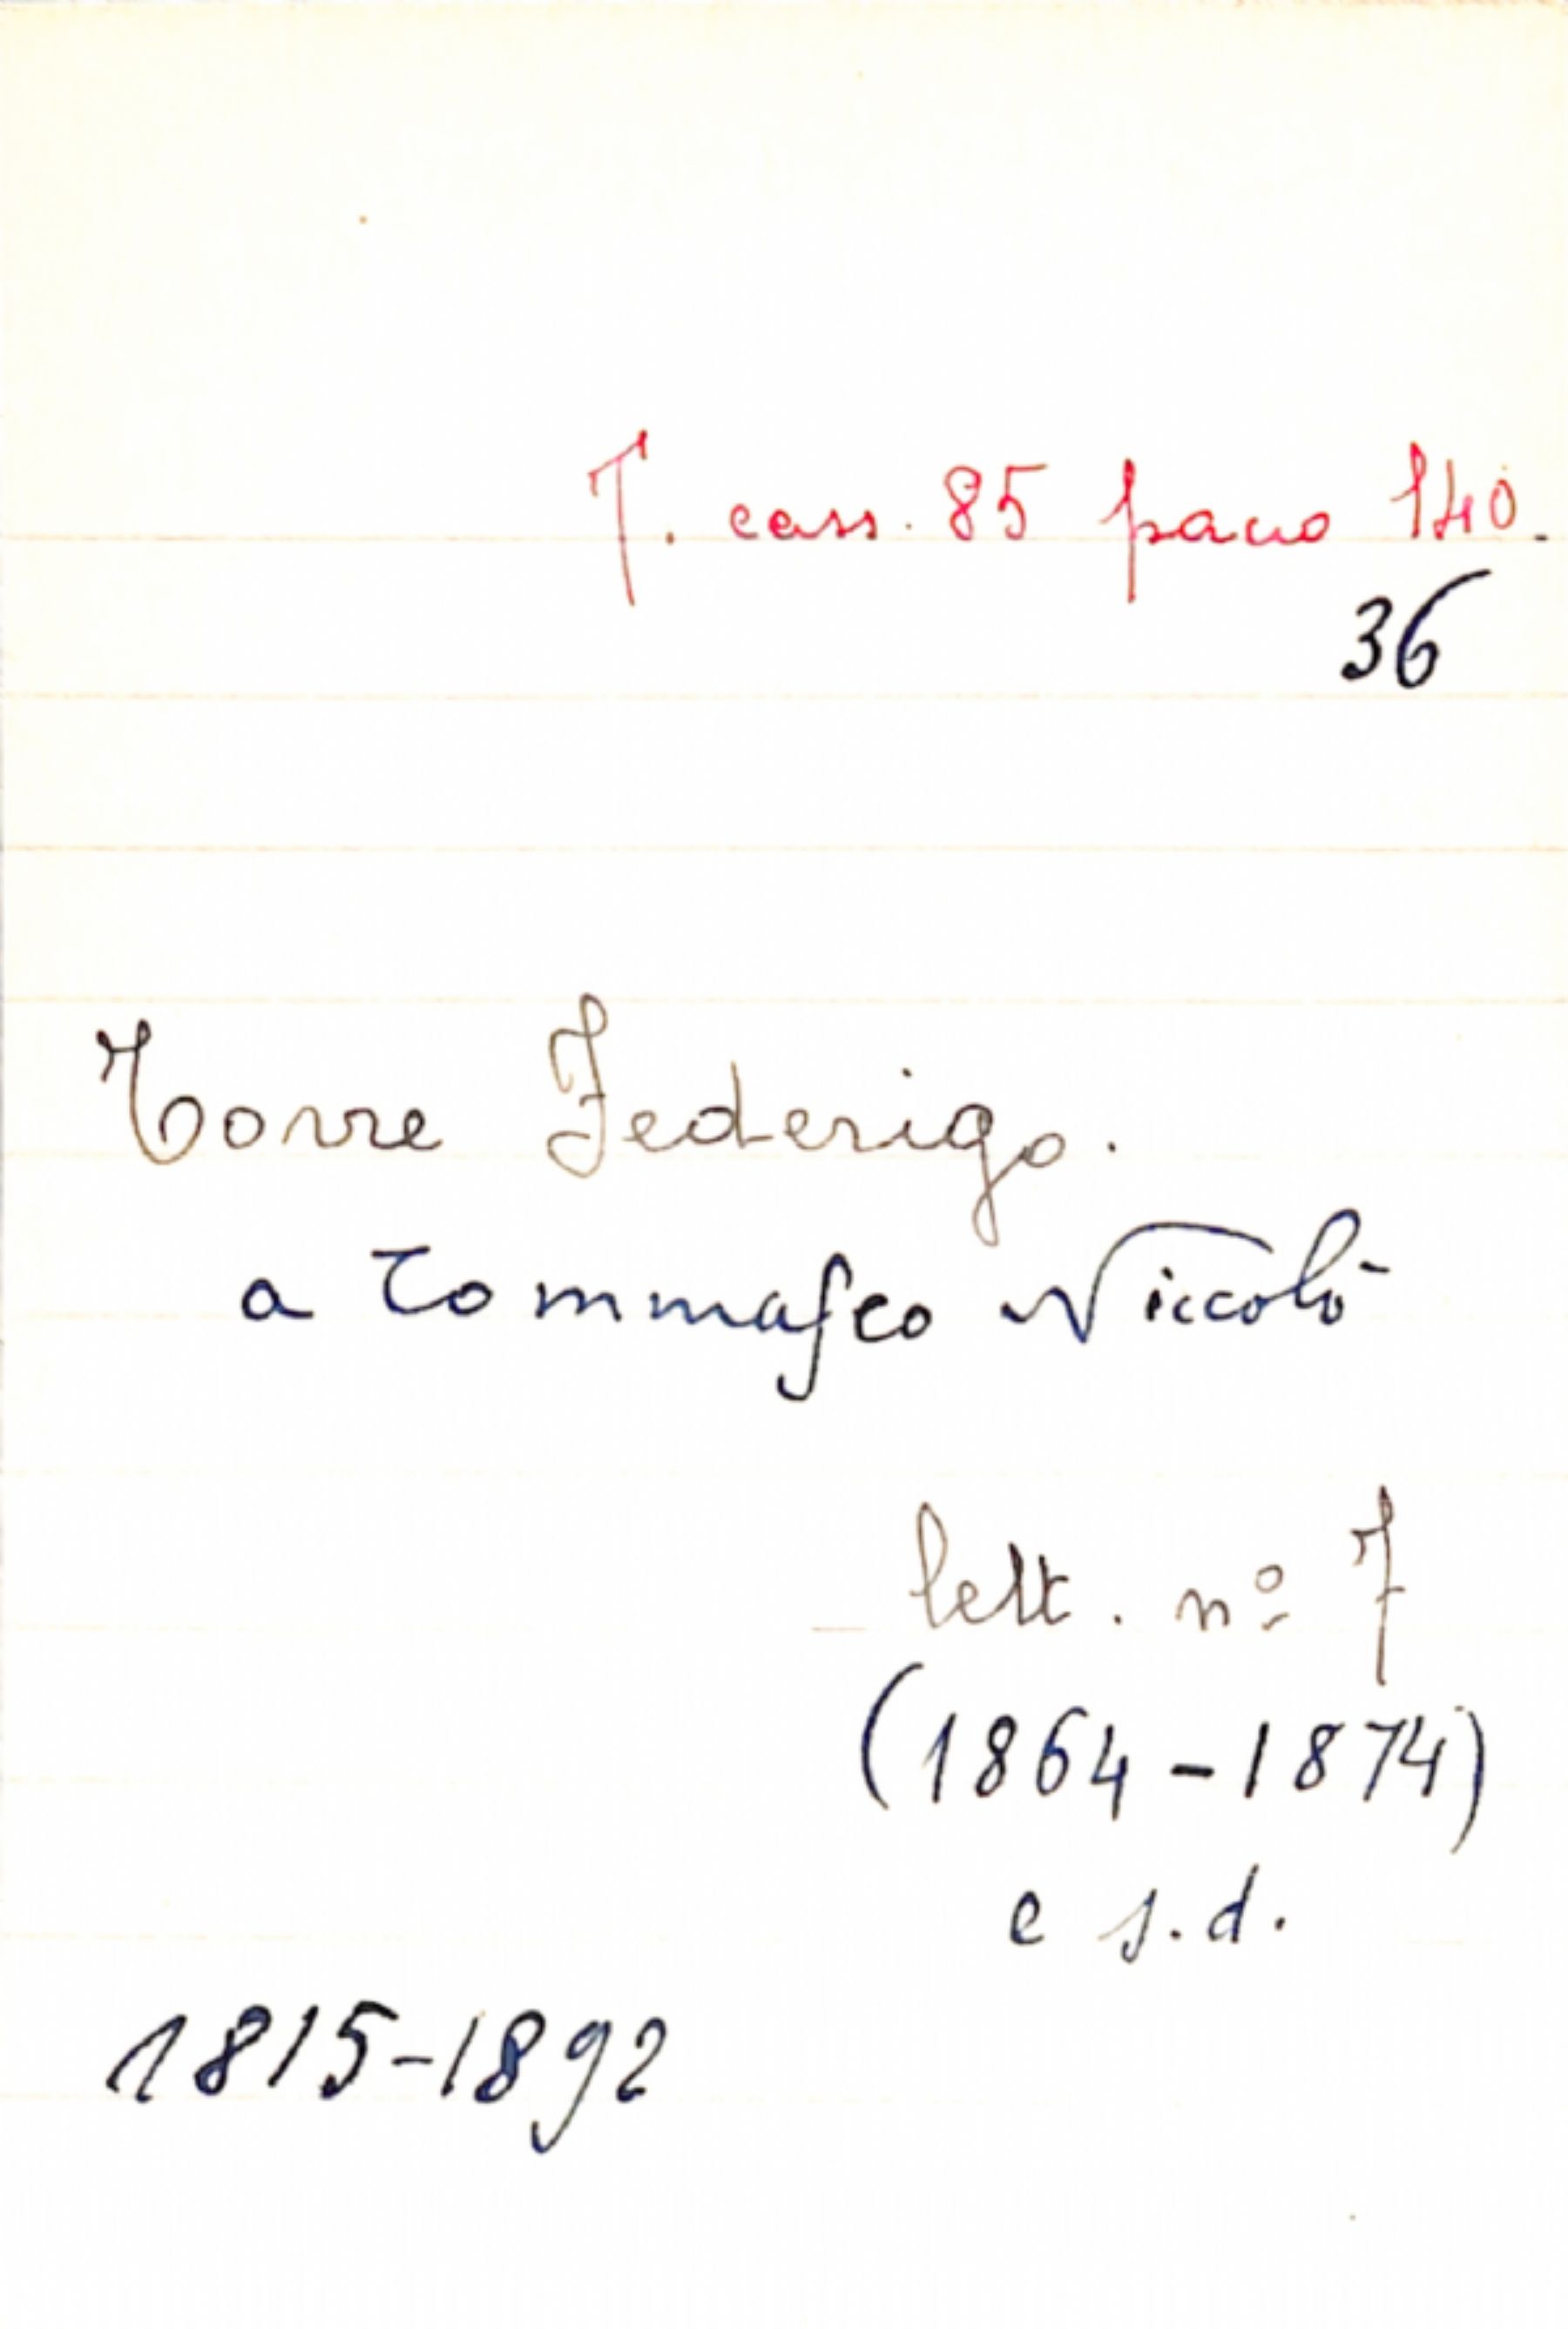 T. cass. 85 pacco 140.
36
Torre Federigo.
a Tommaseo Niccolò
lett. nº 7
(1864-1874)
e s.d.
1815-1892